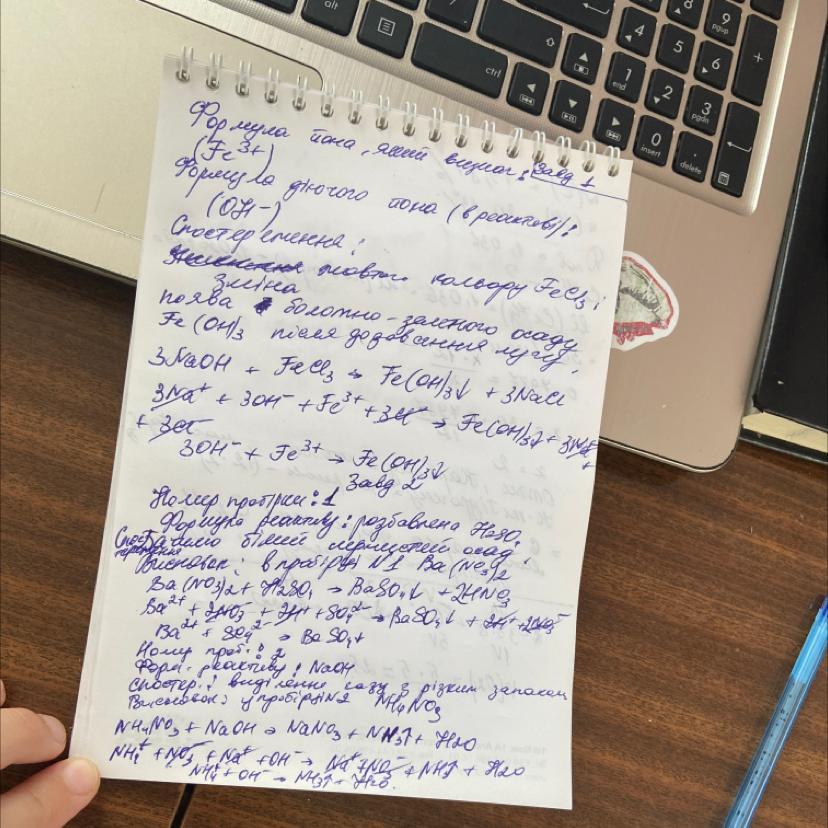 Завд 1
Формула йона, який визнач:
(Fe³⁺)
Формула діючого йона (в реактиві):
(OH⁻)
Спостереження:
Зміна жовтого кольору FeCl₃;
поява болотно-зеленого осаду
Fe(OH)₃ після додавання лугу.
3NaOH + FeCl₃ → Fe(OH)₃↓ + 3NaCl
3Na⁺ + 3OH⁻ + Fe³⁺ + 3Cl⁻ → Fe(OH)₃↓ + 3Na⁺ +
+ 3Cl⁻
3OH⁻ + Fe³⁺ → Fe(OH)₃↓
Завд 2
Номер пробірки: 1
Формула реактиву: розбавлена H₂SO₄
Спостереження: Бачимо білий осад.
Висновок: в пробірці N1 Ba(NO₃)₂
Ba(NO₃)₂ + H₂SO₄ → BaSO₄↓ + 2HNO₃
Ba²⁺ + 2NO₃⁻ + 2H⁺ + SO₄²⁻ → BaSO₄↓ + 2H⁺ + 2NO₃⁻
Ba²⁺ + SO₄²⁻ → BaSO₄↓
Номер проб.: 2
Форм. реактиву: NaOH
Спостер.: виділення газу з різким запахом
Висновок: у пробірці N2 NH₄NO₃
NH₄NO₃ + NaOH → NaNO₃ + NH₃↑ + H₂O
NH₄⁺ + NO₃⁻ + Na⁺ + OH⁻ → Na⁺ + NO₃⁻ + NH₃↑ + H₂O
NH₄⁺ + OH⁻ → NH₃↑ + H₂O.
alt
ctrl
1
end
2
3
pgdn
4
5
6
8
9
pgup
0
insert
delete
+